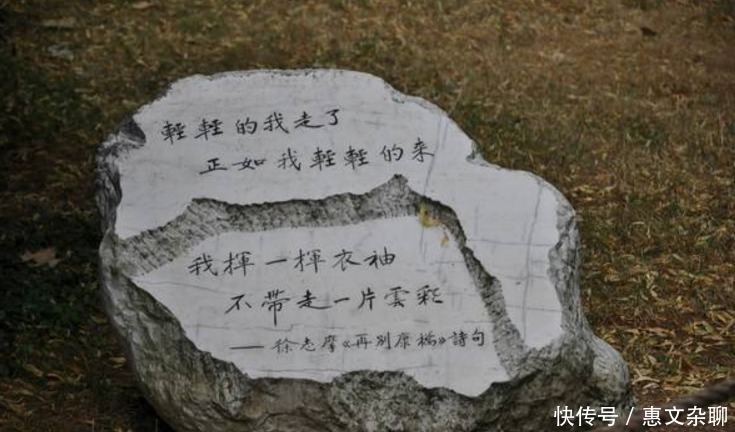 輕輕的我走了
正如我輕輕的来
我揮一揮衣袖
不帶走一片雲彩
——徐志摩《再别康橋》詩句
快传号 / 惠文杂聊